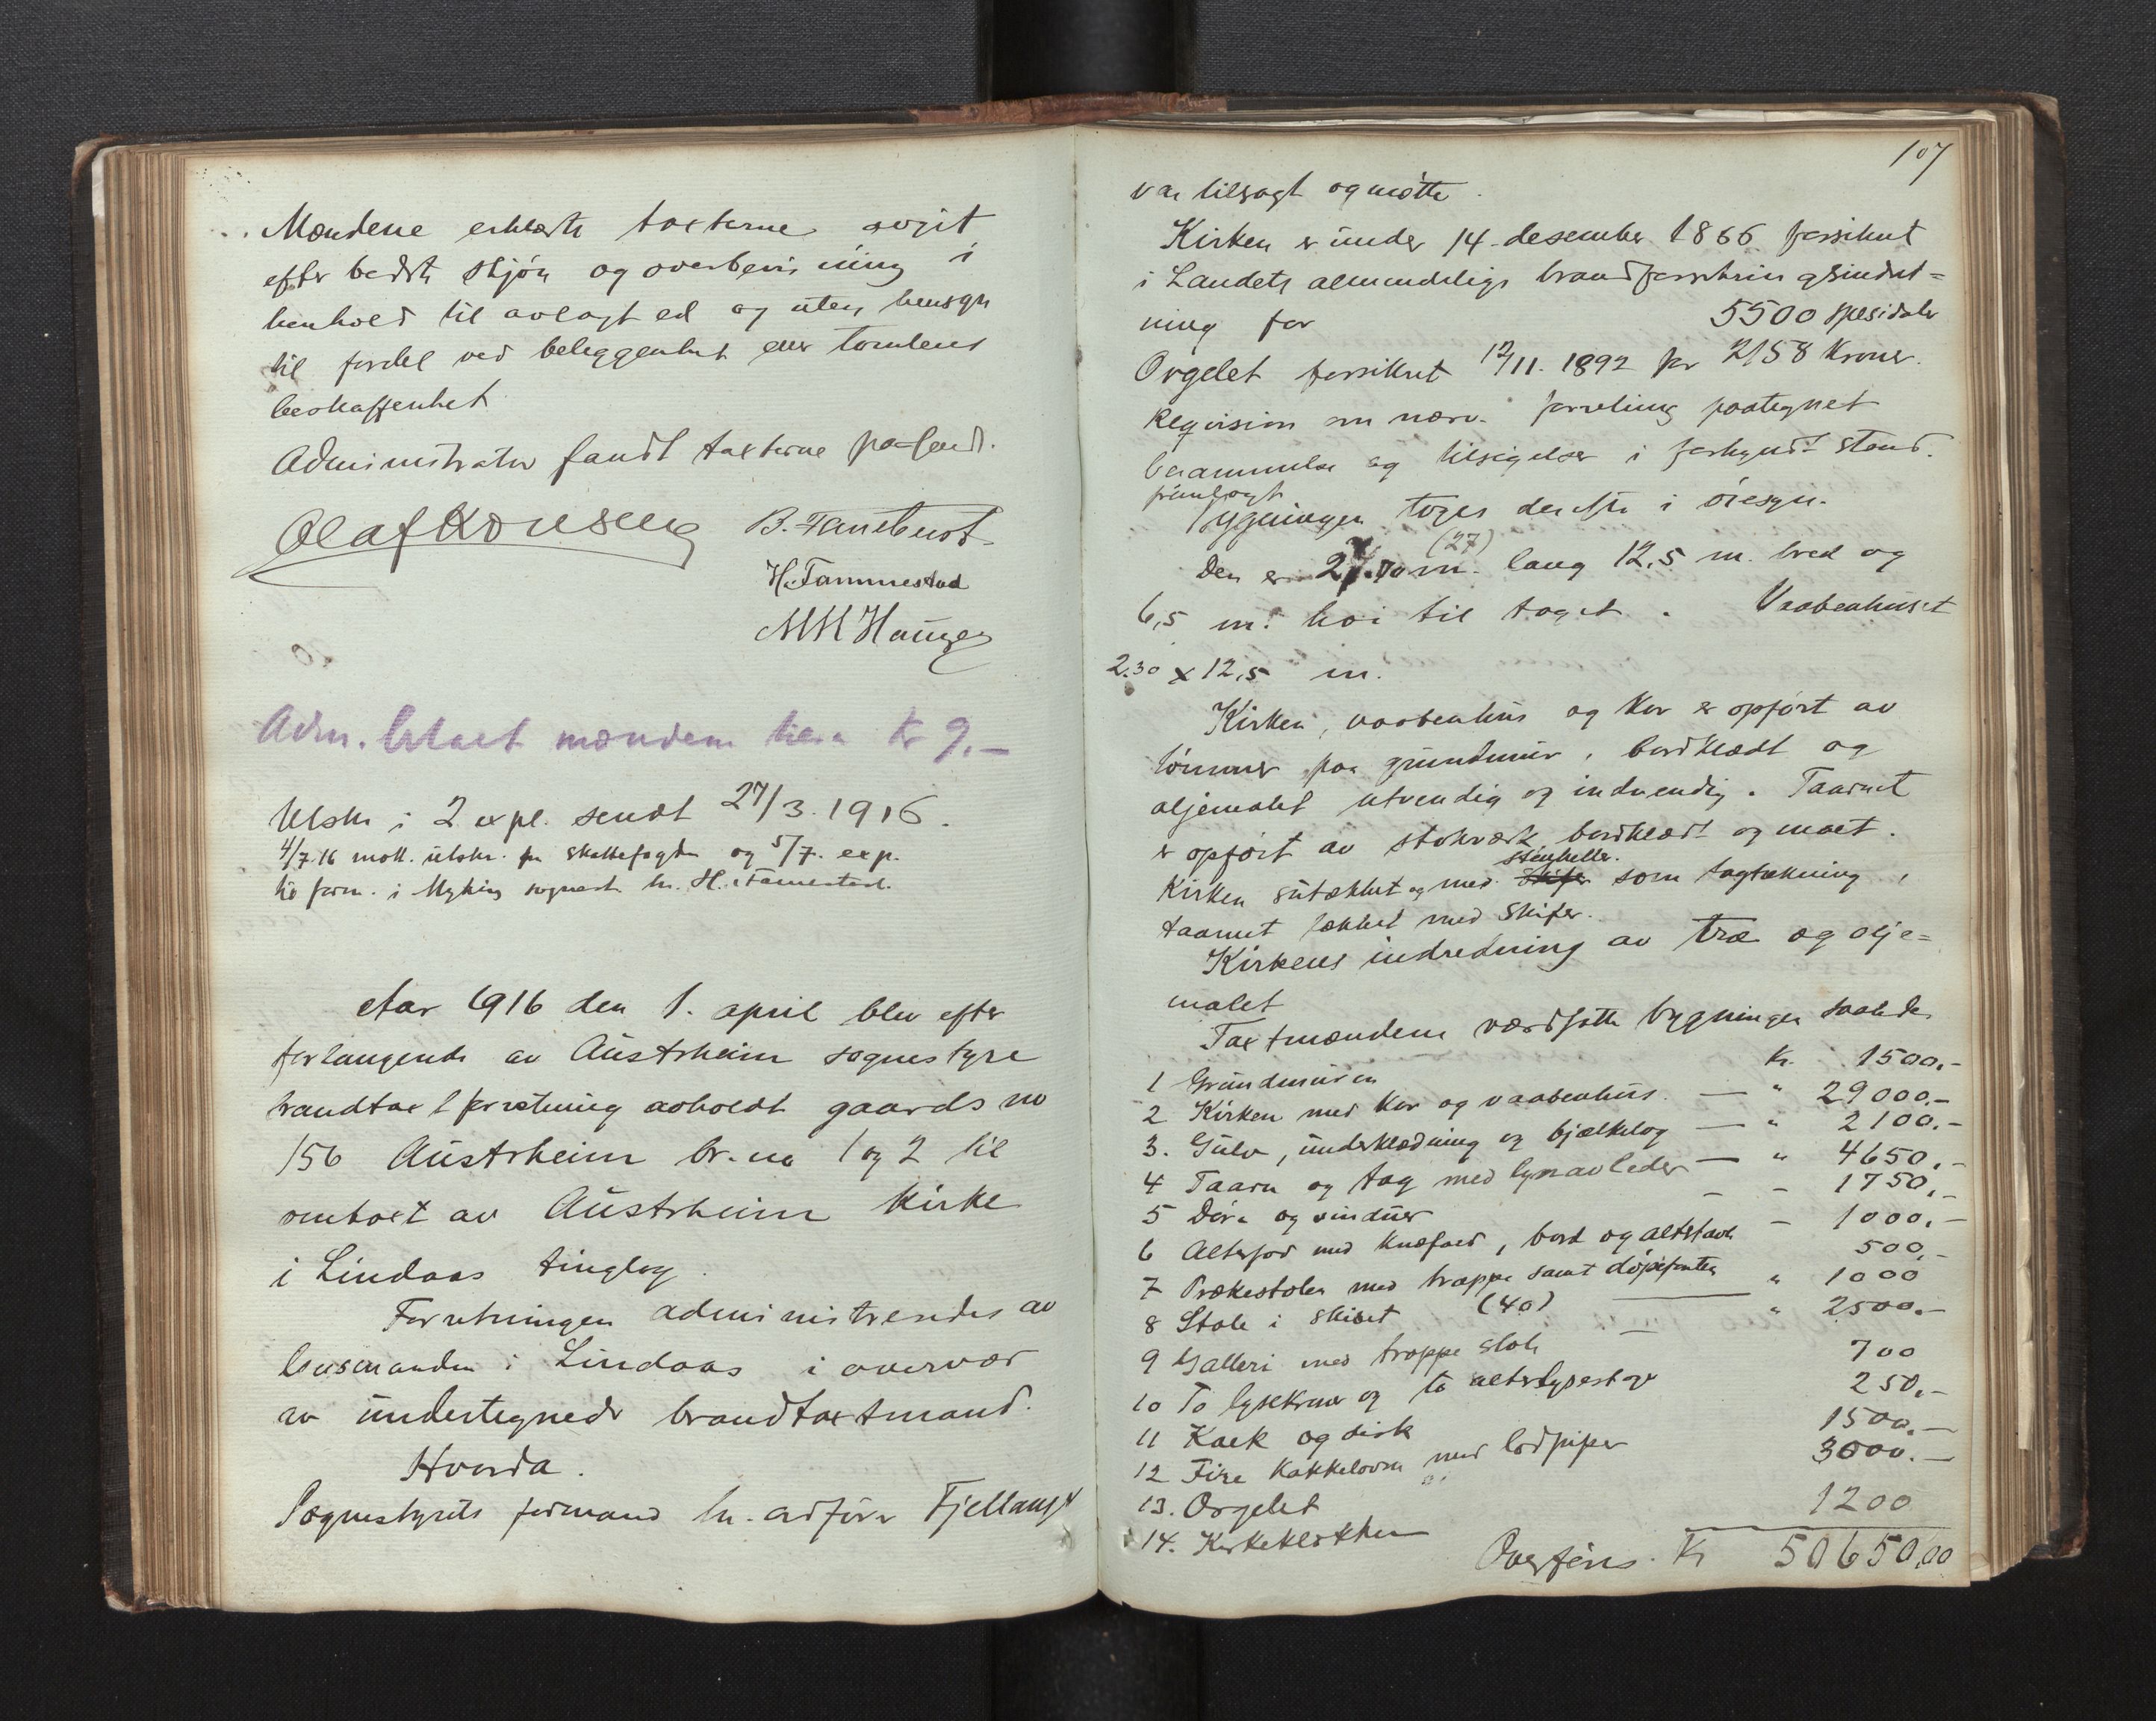 Mændene erklærte taxterne avgit
efter bedste skjøn og overbevisning i
henhold til avlagt ed og uten hensyn
til fordel ved beliggenhet eller tomtens
beskaffenhet
Administrator fandt taxterne passend.
Olaf Kønseng B. Fanebust
H. Tammestad
M M Hauge
Adm. betalt mændene tils. Kr 9.–
Utskr i 2 expl. sendt 27/3. 1916.
4/7.16 mott. utskr. fra Skattefogden og 5/7. exp.
til form. i Myking sognest. hr. H. Tamestad.
Aar 1916 den 1. april blev efter
forlangende av Austrheim sognestyre
brandtaxtforretning avholdt gaards no
156 Austrheim br. no 1 og 2 til
omtaxt av Austrheim Kirke
i Lindaas tinglag.
Forretningen administrertes av
lensmanden i Lindaas i overvær
av undertegnede brandtaxtmænd.
Hvorda.
Sognestyrets formand hr. ordfører Fjellanger
107
var tilsagt og møtte.
Kirken er under 14. desember 1866 forsikret
i Landets almindelige brandforsikringsindret=
ning for 5500 spesidaler
Orgelet forsikret 12/11. 1892 for 2158 Kroner.
Reqvision om nærv. forretning paategnet
berammelse og tilsigelser i forkyndt stand.
fremlagt
Bygningen toges derefter i øiesyn.
(27)
Den er 27.70 m. lang 12,5 m. bred og
6,5 m. høi til taget. Vaabenhuset
2.30 x 12,5 m.
Kirken, vaabenhus og Kor er opført av
tømmer paa grundmur, bordklædt og
oljemalet utvendig og indvendig. Taarnet
er opført av stokværk, bordklædt og malt.
stenheller.
Kirken sutækket og med skifer som tagtækning,
taarnet tækket med skifer.
Kirkens indredning av træ og olje=
malet
Taxtmændene værdsatte bygningen saaledes
1 Grundmuren Kr. 1500.-
2 Kirken med Kor og vaabenhus. — " 29000.-
3. Gulv, underklædning og bjælkelag — " 2100.-
4 Taarn og tag med lynavleder — " 4650.-
5 Døre og vinduer - - 1750.-
6 Alterfod med Knæfald, bord og altertavle - 1000.-
7 Prækestolen med trappe samt døpefonten 500.-
8 Stole i skibet (40) — " 1000
9 Galleri med trappe stole — " 2500.-
10 To lysekroner og to alterlysestager 700
11 Kalk og disk 250.-
12 Fire Kakkelovne med lodpiper 1500.-
13. Orgelet 3000.-
14. Kirkeklokken 1200
Overføres. Kr 50650,00